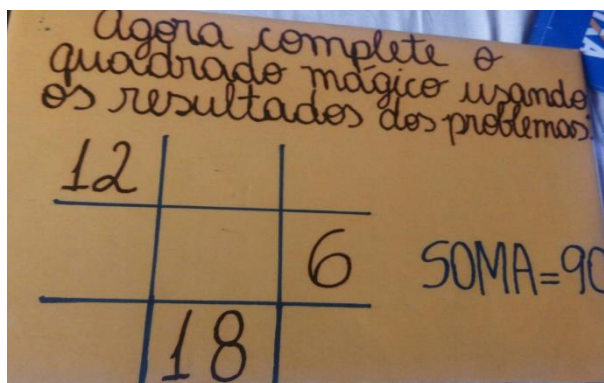 Agora complete o
quadrado mágico usando
os resultados dos problemas:
12
6
SOMA=90
18